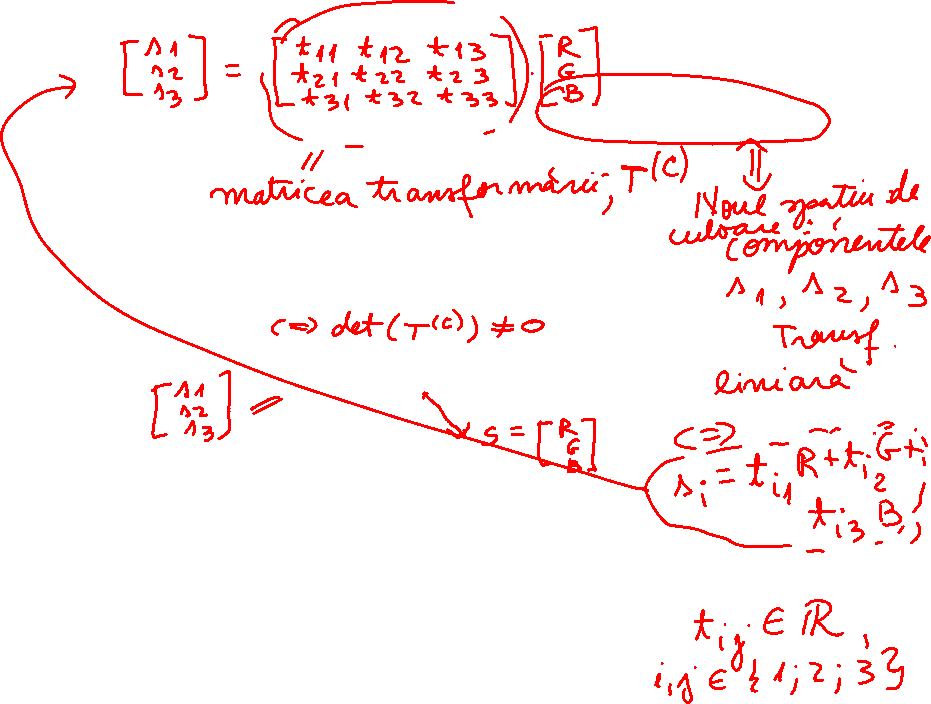 [s1 s2 s3] = [t11 t12 t13
t21 t22 t23
t31 t32 t33] · [R G B]
matricea transformării, T^(C)
Noul spatiu de
culoare
componentele
s1, s2, s3
Transf.
liniară
<=> det(T^(C)) ≠ 0
[s1 s2 s3] =
S = [R G B]
<=>
si = ti1 R + ti2 G +
ti3 B,
tij ∈ R,
i,j ∈ {1; 2; 3}